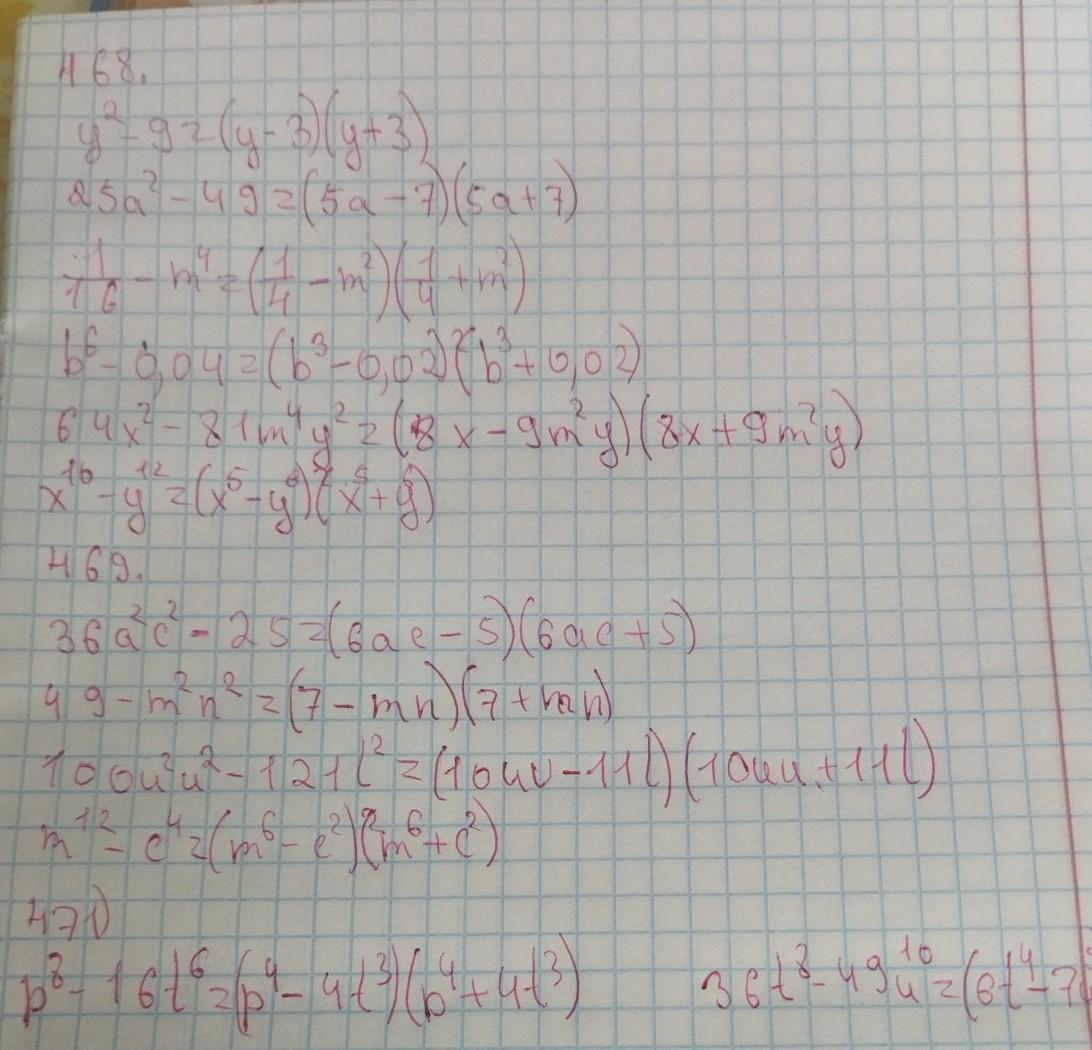 468.
y² - 9 = (y - 3)(y + 3)
25a² - 49 = (5a - 7)(5a + 7)
1/16 - m⁴ = (1/4 - m²)(1/4 + m²)
b⁶ - 0,04 = (b³ - 0,02)(b³ + 0,02)
64x² - 81m⁴y² = (8x - 9m²y)(8x + 9m²y)
x¹⁰ - y¹² = (x⁵ - y⁶)(x⁵ + y⁶)
469.
36a²c² - 25 = (6ac - 5)(6ac + 5)
49 - m²n² = (7 - mn)(7 + mn)
100u²u² - 121l² = (10uv - 11l)(10uu + 11l)
m¹² - c⁴ = (m⁶ - c²)(m⁶ + c²)
471)
p⁸ - 16t⁶ = (p⁴ - 4t³)(p⁴ + 4t³) 36t⁸ - 49u¹⁰ = (6t⁴ - 7